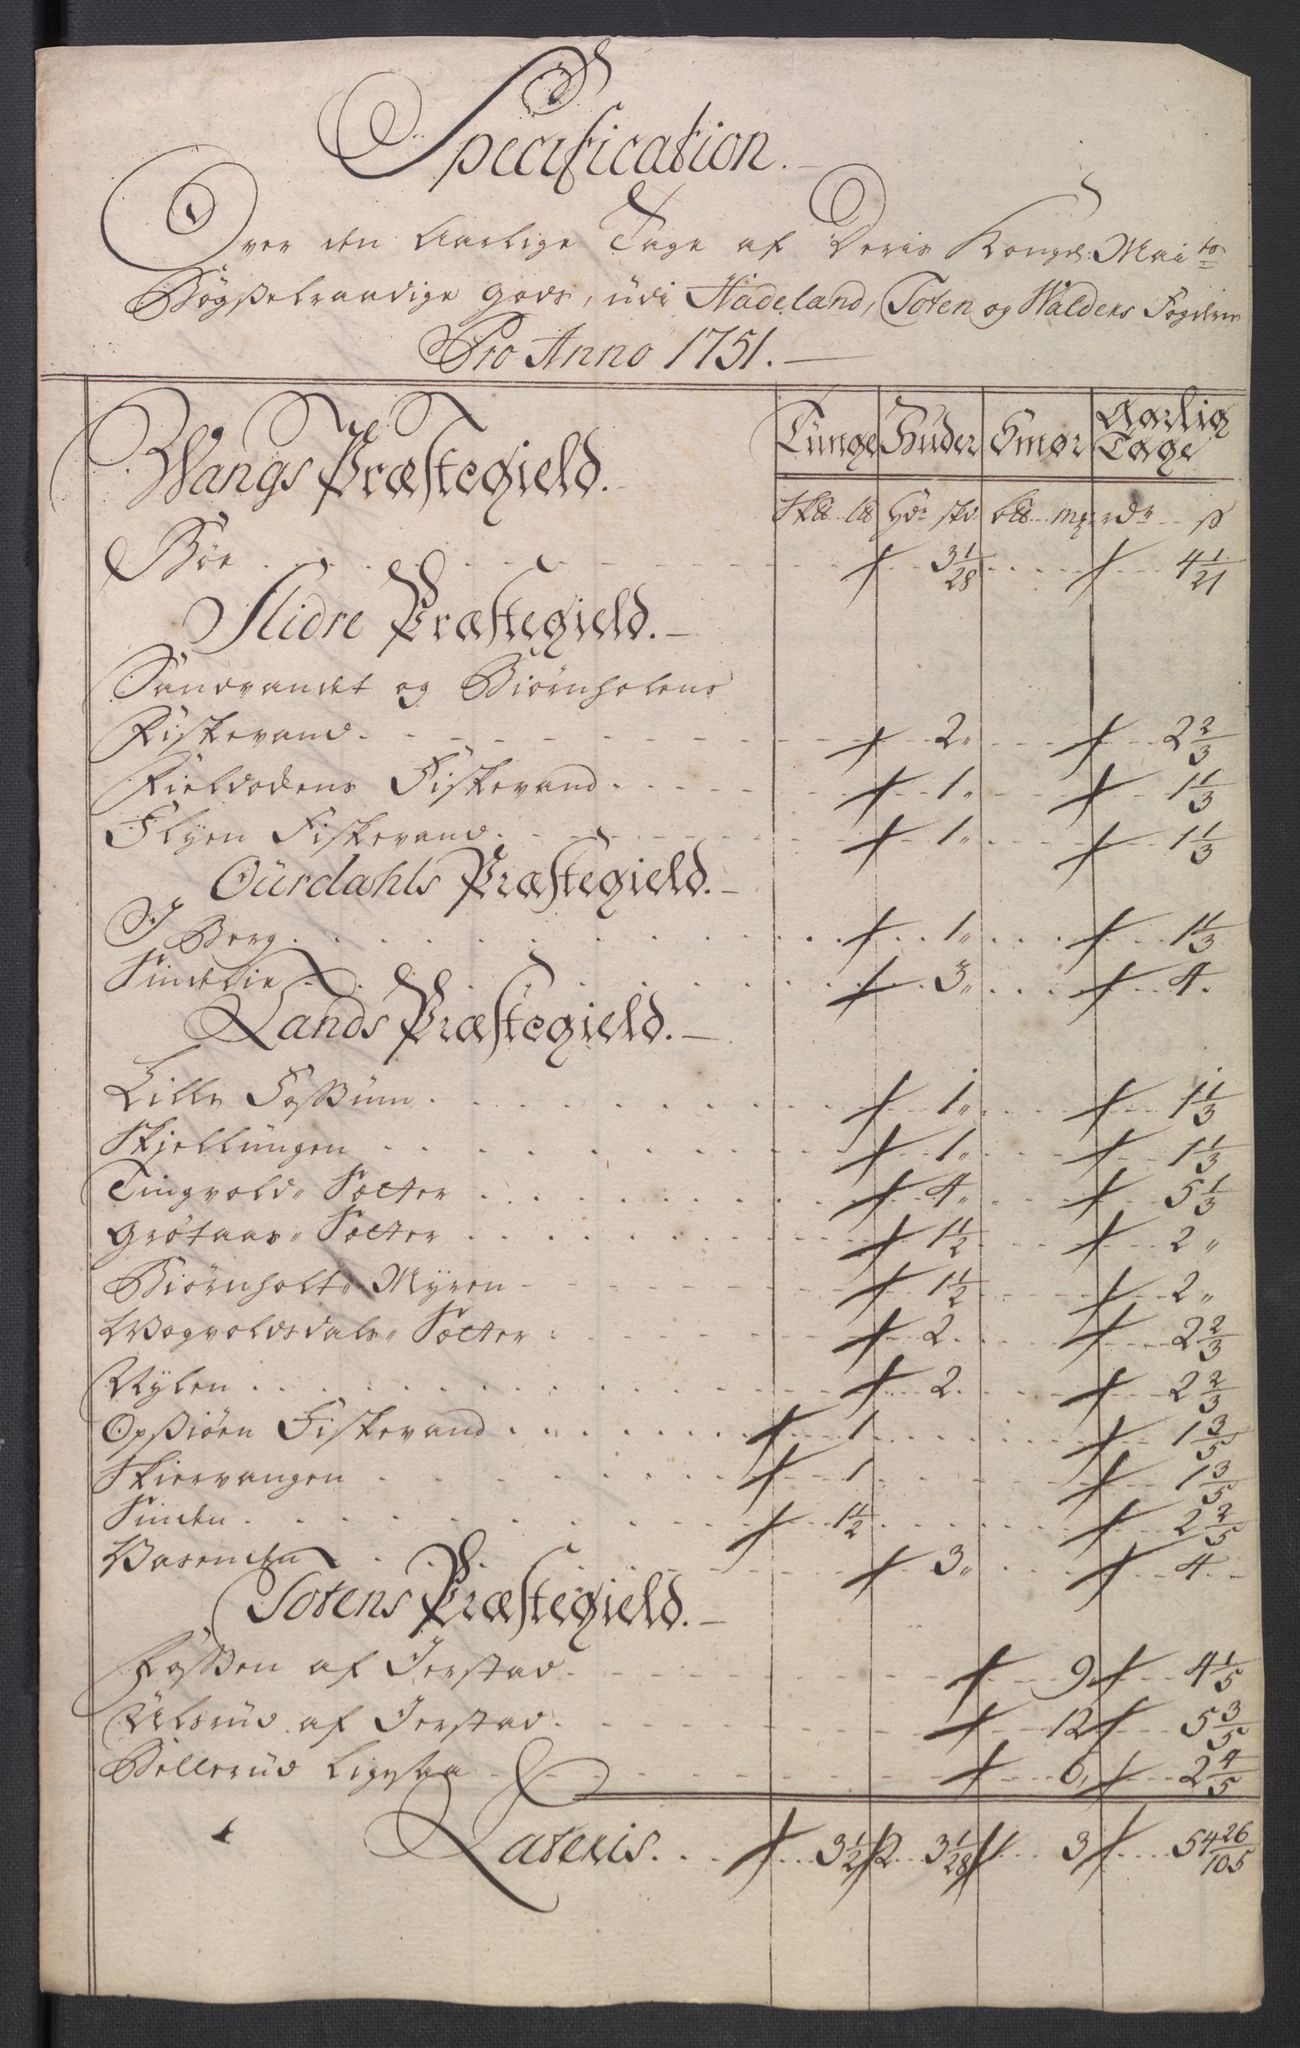 Specification.
Over den Aarlige Tage af Deris Kongl: Mai<sup>ts</sup>
Bögßelraadige gods, udi Hadeland, Toten og Walders Fogderie
Pro Anno 1751.
Tunge Huder Smør Aarlig Tage
Wangs Præstegield.
Sk℔ l℔ hdr skd. b℔ mɟ rdr ß
Böe 3 1/28 4 1/21
Slidre Præstegield.
Sandvandet og Biörnholens
Fiskevand. 2" 2 2/3
Fieldodens Fiskevand 1" 1 1/3
Flyen Fiskevand. 1" 1 1/3
Ourdahls Præstegield.
I Berg 1" 1 1/3
Sindelie 3" 4.
Lands Præstegield.
Lille Foßum 1" 1 1/3
Skjellungen 1" 1 1/3
Tingvold" Sæter 4" 5 1/3
Grötaas" Sæter 1 1/2 2"
Biörnholt" Myren 1 1/2 2"
Wogvoldsdals" Sæter 2. 2 2/3
Nylen 2. 2 2/3
Opsiöen Fiskevand 1 1 3/5
Skiervangen 1 1 3/5
Sinden 1 1/2 2 2/5
Vasenden 3" 4.
Totens Præstegield.
Foßen af Ierstad. 9. 4 1/5
Ulsrud af Ierstad. 12 5 3/5
Bellerud 6, 2 4/5
Lateris. 3 1/2 2. 3 1/28 1 3 54 26/105